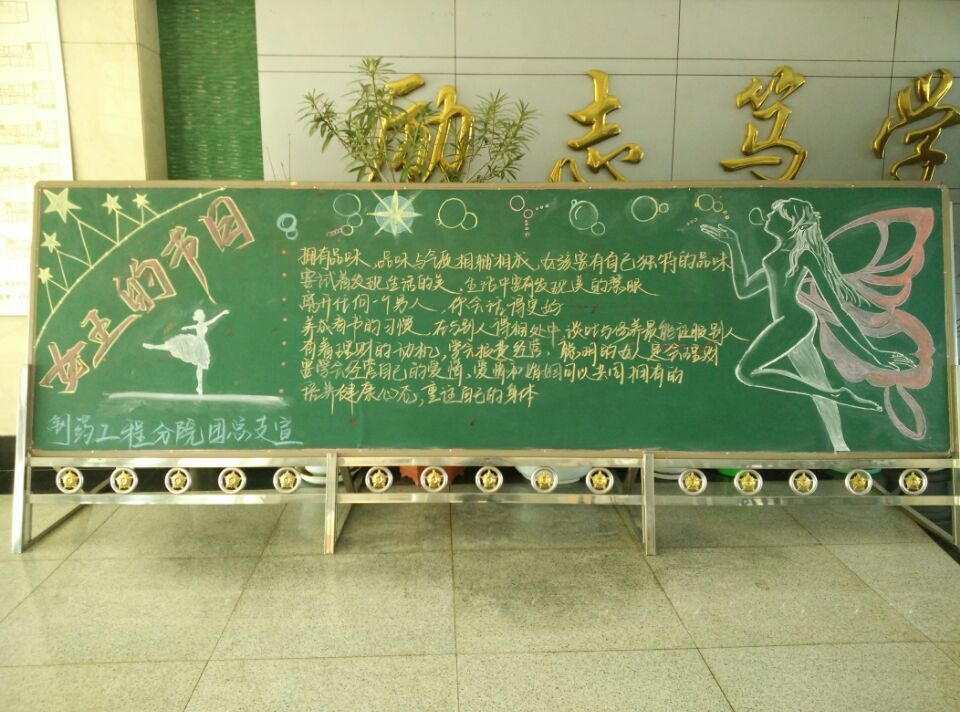 励志笃学
女王的节日
拥有品味，品味与气质相辅相成，女孩要有自己独特的品味
尝试着发现生活的美，生活中要有发现美的慧眼
离开任何一个男人，你会活得更好
养成看书的习惯，在与别人得相处中，谈吐与修养最能征服别人
有着理财的动机，学会投资经营，聪明的女人更会理财
要学会经营自己的爱情，爱情和婚姻可以共同拥有的
培养健康心态，重注自己的身体
制药工程分院团总支宣